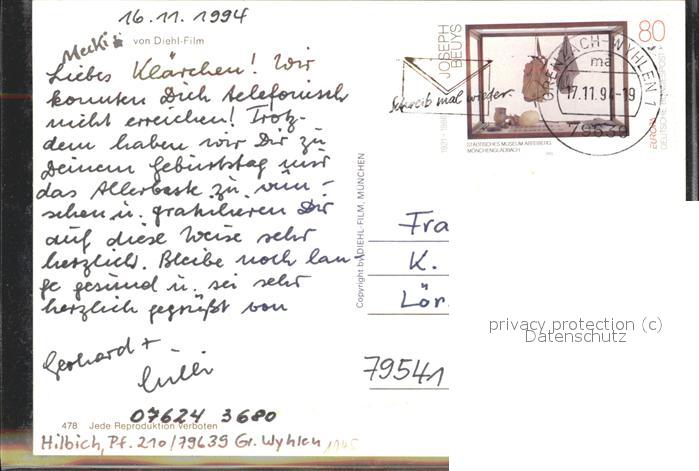 16.11.1994
Mecki von Diehl-Film
Liebes Klärchen! Wir
konnten Dich telefonisch
nicht erreichen! Trotz-
dem haben wir Dir zu
Deinem Geburtstag nur
das Allerbeste zu wün-
schen u. gratulieren Dir
auf diese Weise sehr
herzlich. Bleibe noch lan-
ge gesund u. sei sehr
herzlich gegrüßt von
Gerhard +
07624 3680
478 Jede Reproduktion verboten
Hilbich, Pf. 210/79639 Gr. Wyhlen 1945
Copyright by DIEHL-FILM, MÜNCHEN
Schreib mal wieder.
JOSEPH
BEUYS
1921 - 1986
80
STÄDTISCHES MUSEUM ABTEIBERG
MÖNCHENGLADBACH
EUROPA
DEUTSCHE BUNDESPOST
GRENZACH-WYHLEN 1
ma
17.11.94-19
79639
Fra
K.
Lör.
79541
privacy protection (c)
Datenschutz